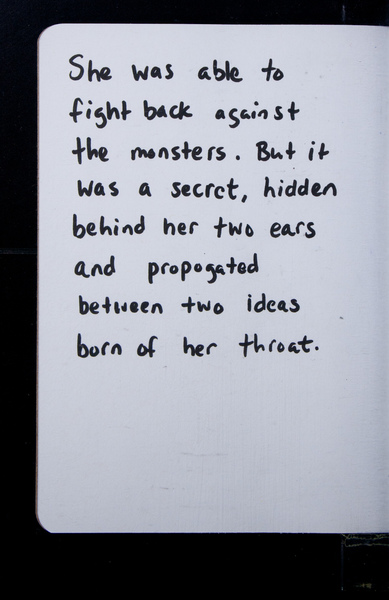 She was able to
fight back against
the monsters. But it
was a secret, hidden
behind her two ears
and propogated
between two ideas
born of her throat.